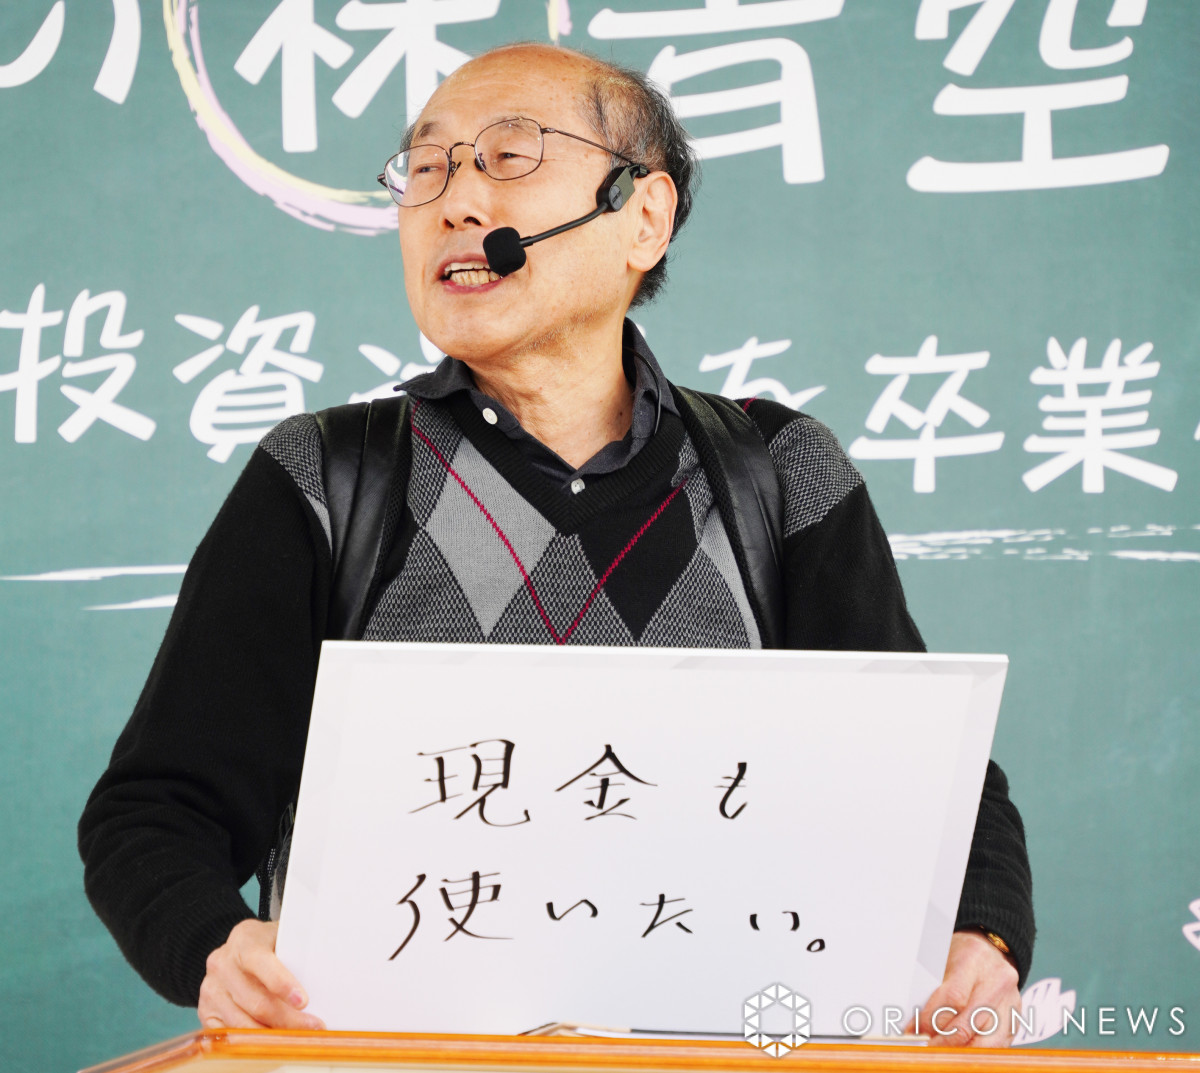 の株青空
投資 を卒業
現金も
使いたい。
ORICON NEWS